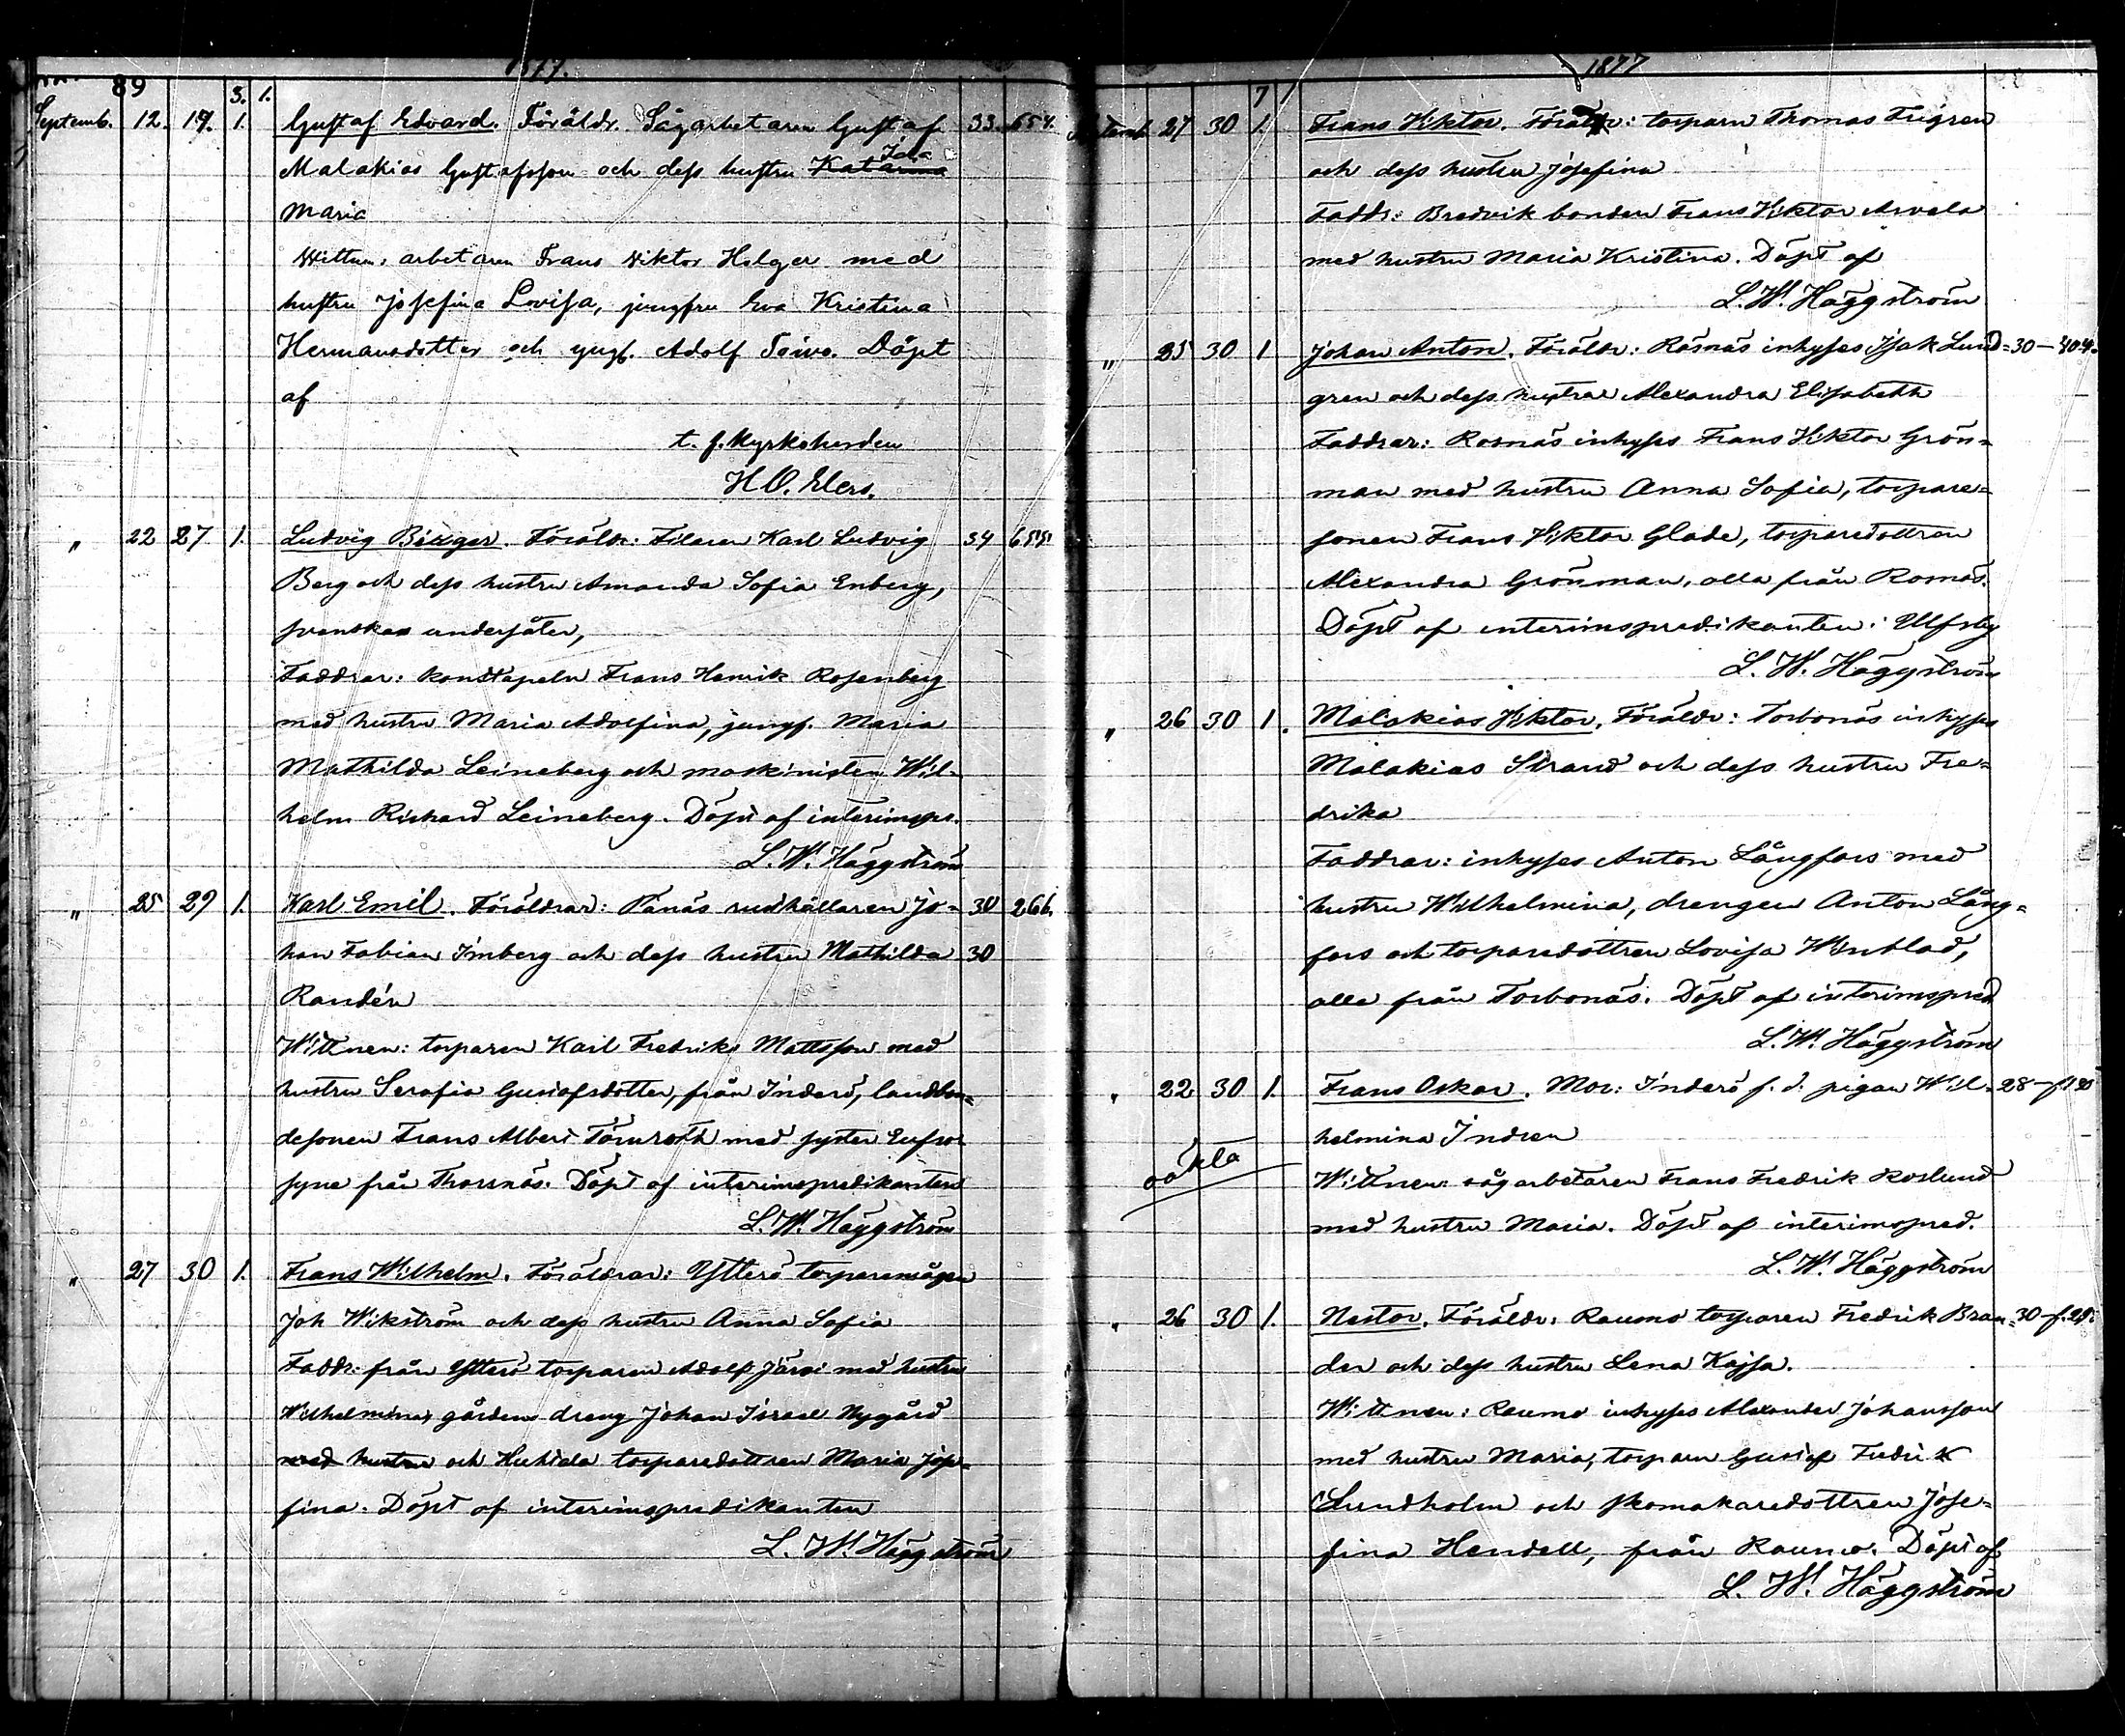 89 1877.
3. 1.
Septemb. 12. 19. 1. Gustaf Edvard. Föräldr. Sågarbetaren Gustaf 33. 654.
Malakias Gustafsson och dess hustru Katarina Ida
Maria
Wittnen: arbetaren Frans Viktor Holger med
hustru Josefina Lovisa, jungfru Eva Kristina
Hermansdotter och yngl. Adolf Toivo. Döpt
af
t. f. Kyrkoherden
H. O. Elers.
" 22 27 1. Ludvig Birger. Föräldr: Filaren Karl Ludvig 34 655
Berg och dess hustru Amanda Sofia Enberg,
svenska undersåter,
Faddrar: konstapeln Frans Henrik Rosenberg
med hustru Maria Adolfina, jungf. Maria
Mathilda Leineberg och maskinisten Wil-
helm Rickard Leineberg. Döpt af interimspr.
L. W. Häggström
" 25 29 1. Karl Emil. Föräldrar: Pånäs rusthållaren Jo- 30 266.
han Fabian Imberg och dess hustru Mathilda 30
Randén
Wittnen: torparen Karl Fredrik Mattsson med
hustru Serafia Gustafsdotter, från Inderö, landbon-
desonen Frans Albert Törnroth med syster Eufro-
syne från Thorsnäs. Döpt af interimspredikanten
L. W. Häggström
" 27 30 1. Frans Wilhelm. Föräldrar: Ytterö torparemågen
Joh Wikström och dess hustru Anna Sofia
Faddr: från Ytterö torparen Adolf Järvi med hustru
Wilhelmina, gårdens dreng Johan Israel Nygård
med hustru och torparedottren Maria Jose-
fina. Döpt af interimspredikanten
L. W. Häggström
1877
7 1
Septemb 27 30 1. Frans Viktor. Föräldr: torparn Thomas Frigren
och dess hustru Josefina
Faddr: Bredvik bonden Frans Viktor Arvela
med hustru Maria Kristina. Döpt af
L. W. Häggström
" 25 30 1 Johan Anton. Föräldr: Rosnäs inhyses Isak Lund- 30 — 404.
gren och dess hustru Alexandra Elisabeth
Faddrar: Rosnäs inhyses Frans Viktor Grön-
man med hustru Anna Sofia, torpare-
sonen Frans Viktor Glade, torparedottren
Alexandra Grönman, alla från Rosnäs.
Döpt af interimspredikanten i Ulfsby
L. W. Häggström
" 26 30 1. Malakias Viktor. Föräldr: Torbonäs inhyses
Malakias Strand och dess hustru Fre-
drika
Faddrar: inhyses Anton Långfors med
hustru Wilhelmina, drengen Anton Lång-
fors och torparedottren Lovisa Winblad,
alla från Torbonäs. Döpt af interimspred
L. W. Häggström
" 22 30 1. Frans Oskar. Mor: Inderö f. d. pigan Wil- 28
helmina Indren
oäkta
Wittnen: sågarbetaren Frans Fredrik Roslund
med hustru Maria. Döpt af interimspred.
L. W. Häggström
" 26 30 1. Nestor. Föräldr: Raumo torparen Fredrik Bran- 30
der och dess hustru Lena Kajsa.
Wittnen: Raumo inhyses Alexander Johansson
med hustru Maria, torparen Gustaf Fredrik
Lundholm och skomakaredottren Jose-
fina Hendell, från Raumo. Döpt af
L. W. Häggström